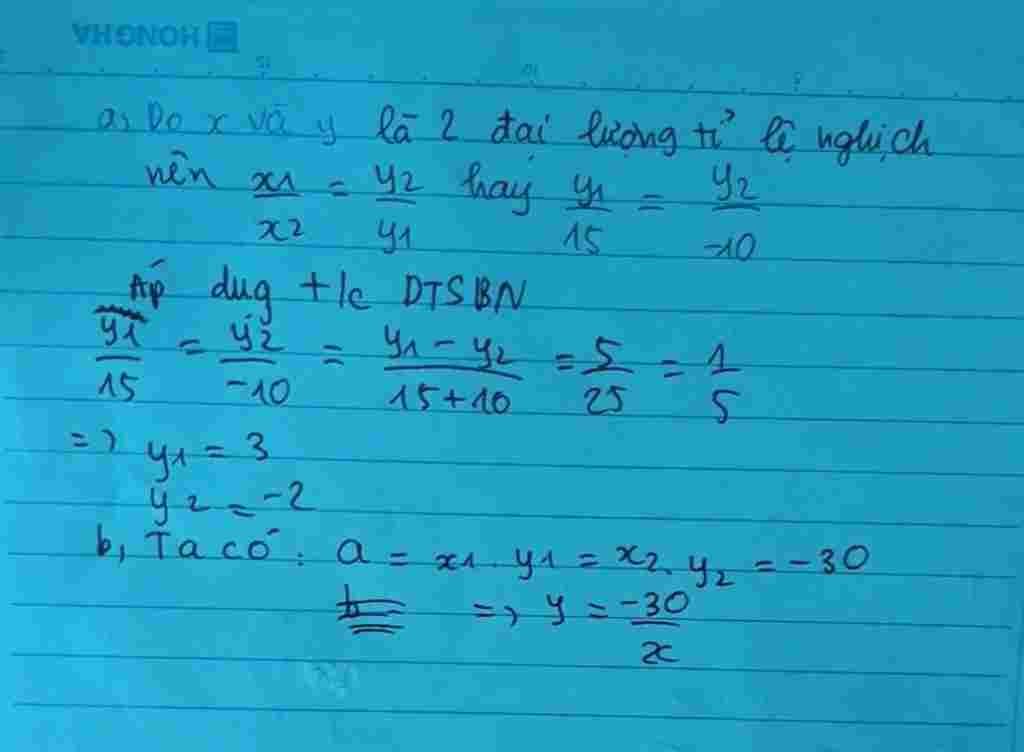 HONGHA
a, Do x và y là 2 đại lượng tỉ lệ nghịch
nên x1/x2 = y2/y1 hay y1/15 = y2/-10
Áp dug t/c DTSBN
y1/15 = y2/-10 = y1 - y2/15+10 = 5/25 = 1/5
=> y1 = 3
y2 = -2
b, Ta có: a = x1. y1 = x2. y2 = -30
=> y = -30/x